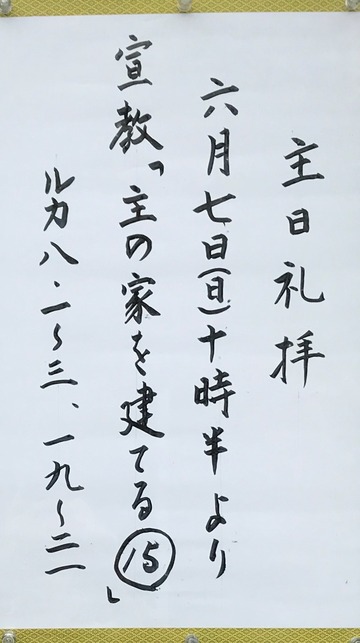 主日礼拝
六月七日(日)十時半より
宣教「主の家を建てる⑮」
ルカ八・一~三、一九~二一